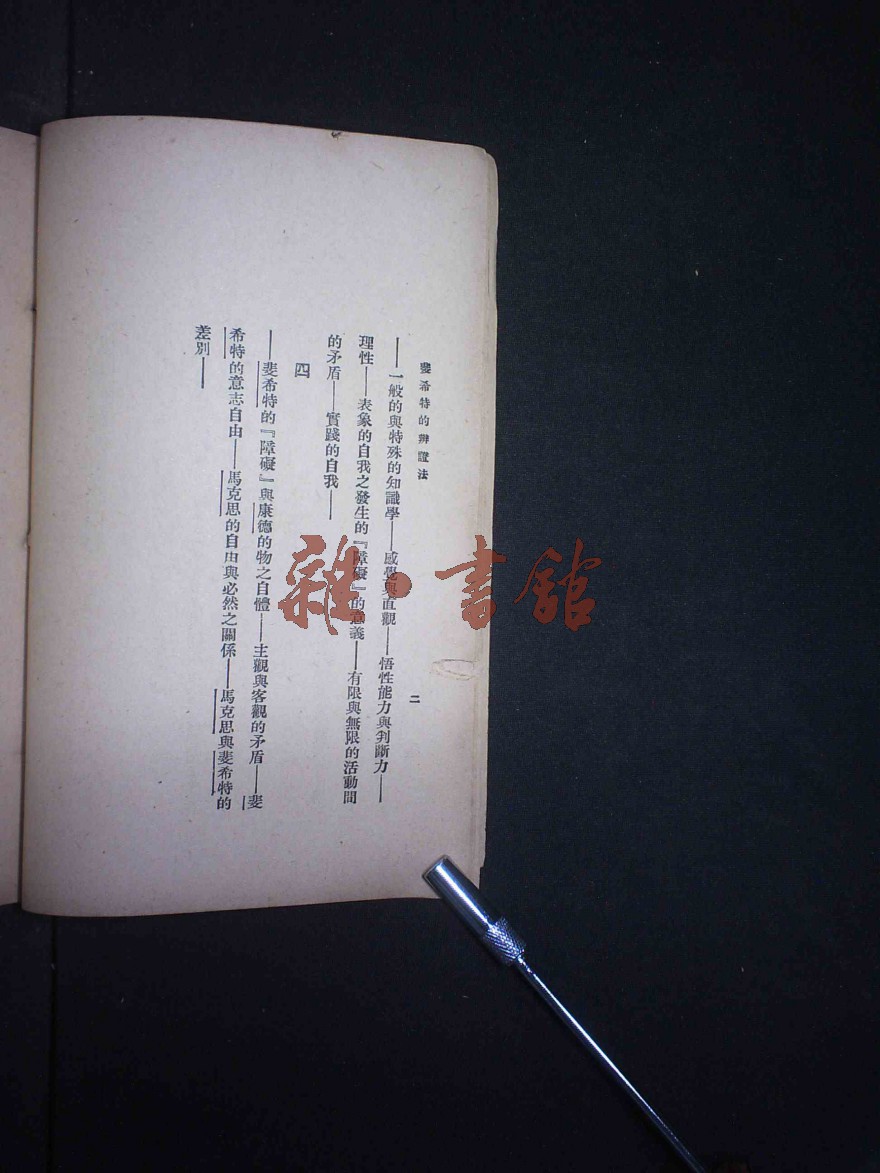 斐希特的辨證法
二
——一般的與特殊的知識學——感覺與直觀——悟性能力與判斷力——
理性——表象的自我之發生的『障礙』的意義——有限與無限的活動間
的矛盾——實踐的自我——
四
——斐希特的『障礙』與康德的物之自體——主觀與客觀的矛盾——斐
希特的意志自由——馬克思的自由與必然之關係——馬克思與斐希特的
差別——
雜·書館